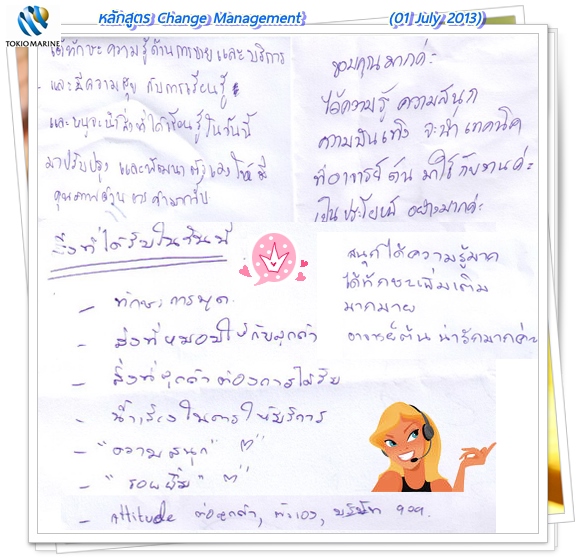 หลักสูตร Change Management (01 July 2013)
TOKIO MARINE
ได้ทักษะ ความรู้ด้านการขาย และบริการ
และมีความสุข กับการเรียนรู้
และหนูจะนำสิ่งที่ได้เรียนรู้ในวันนี้
มาปรับปรุง และพัฒนาตัวเองให้มี
คุณภาพ
ขอบคุณมากค่ะ
ได้ความรู้ ความสนุก
ความบันเทิง จะนำเทคนิค
ที่อาจารย์ต้น มาใช้กับงานค่ะ
เป็นประโยชน์ อย่างมากค่ะ
สิ่งที่ได้รับในวันนี้
- ทักษะการพูด
- สิ่งที่หมอบให้กับลูกค้า
- สิ่งที่ลูกค้าต้องการได้รับ
- น้ำเสียงในการให้บริการ
- "ความสนุก"
- "รอยยิ้ม"
- Attitude ต่อลูกค้า, ตัวเอง, บริษัท ฯลฯ
สนุก ได้ความรู้มาก
ได้ทักษะเพิ่มเติม
มากมาย
อาจารย์ต้น น่ารักมากค่ะ